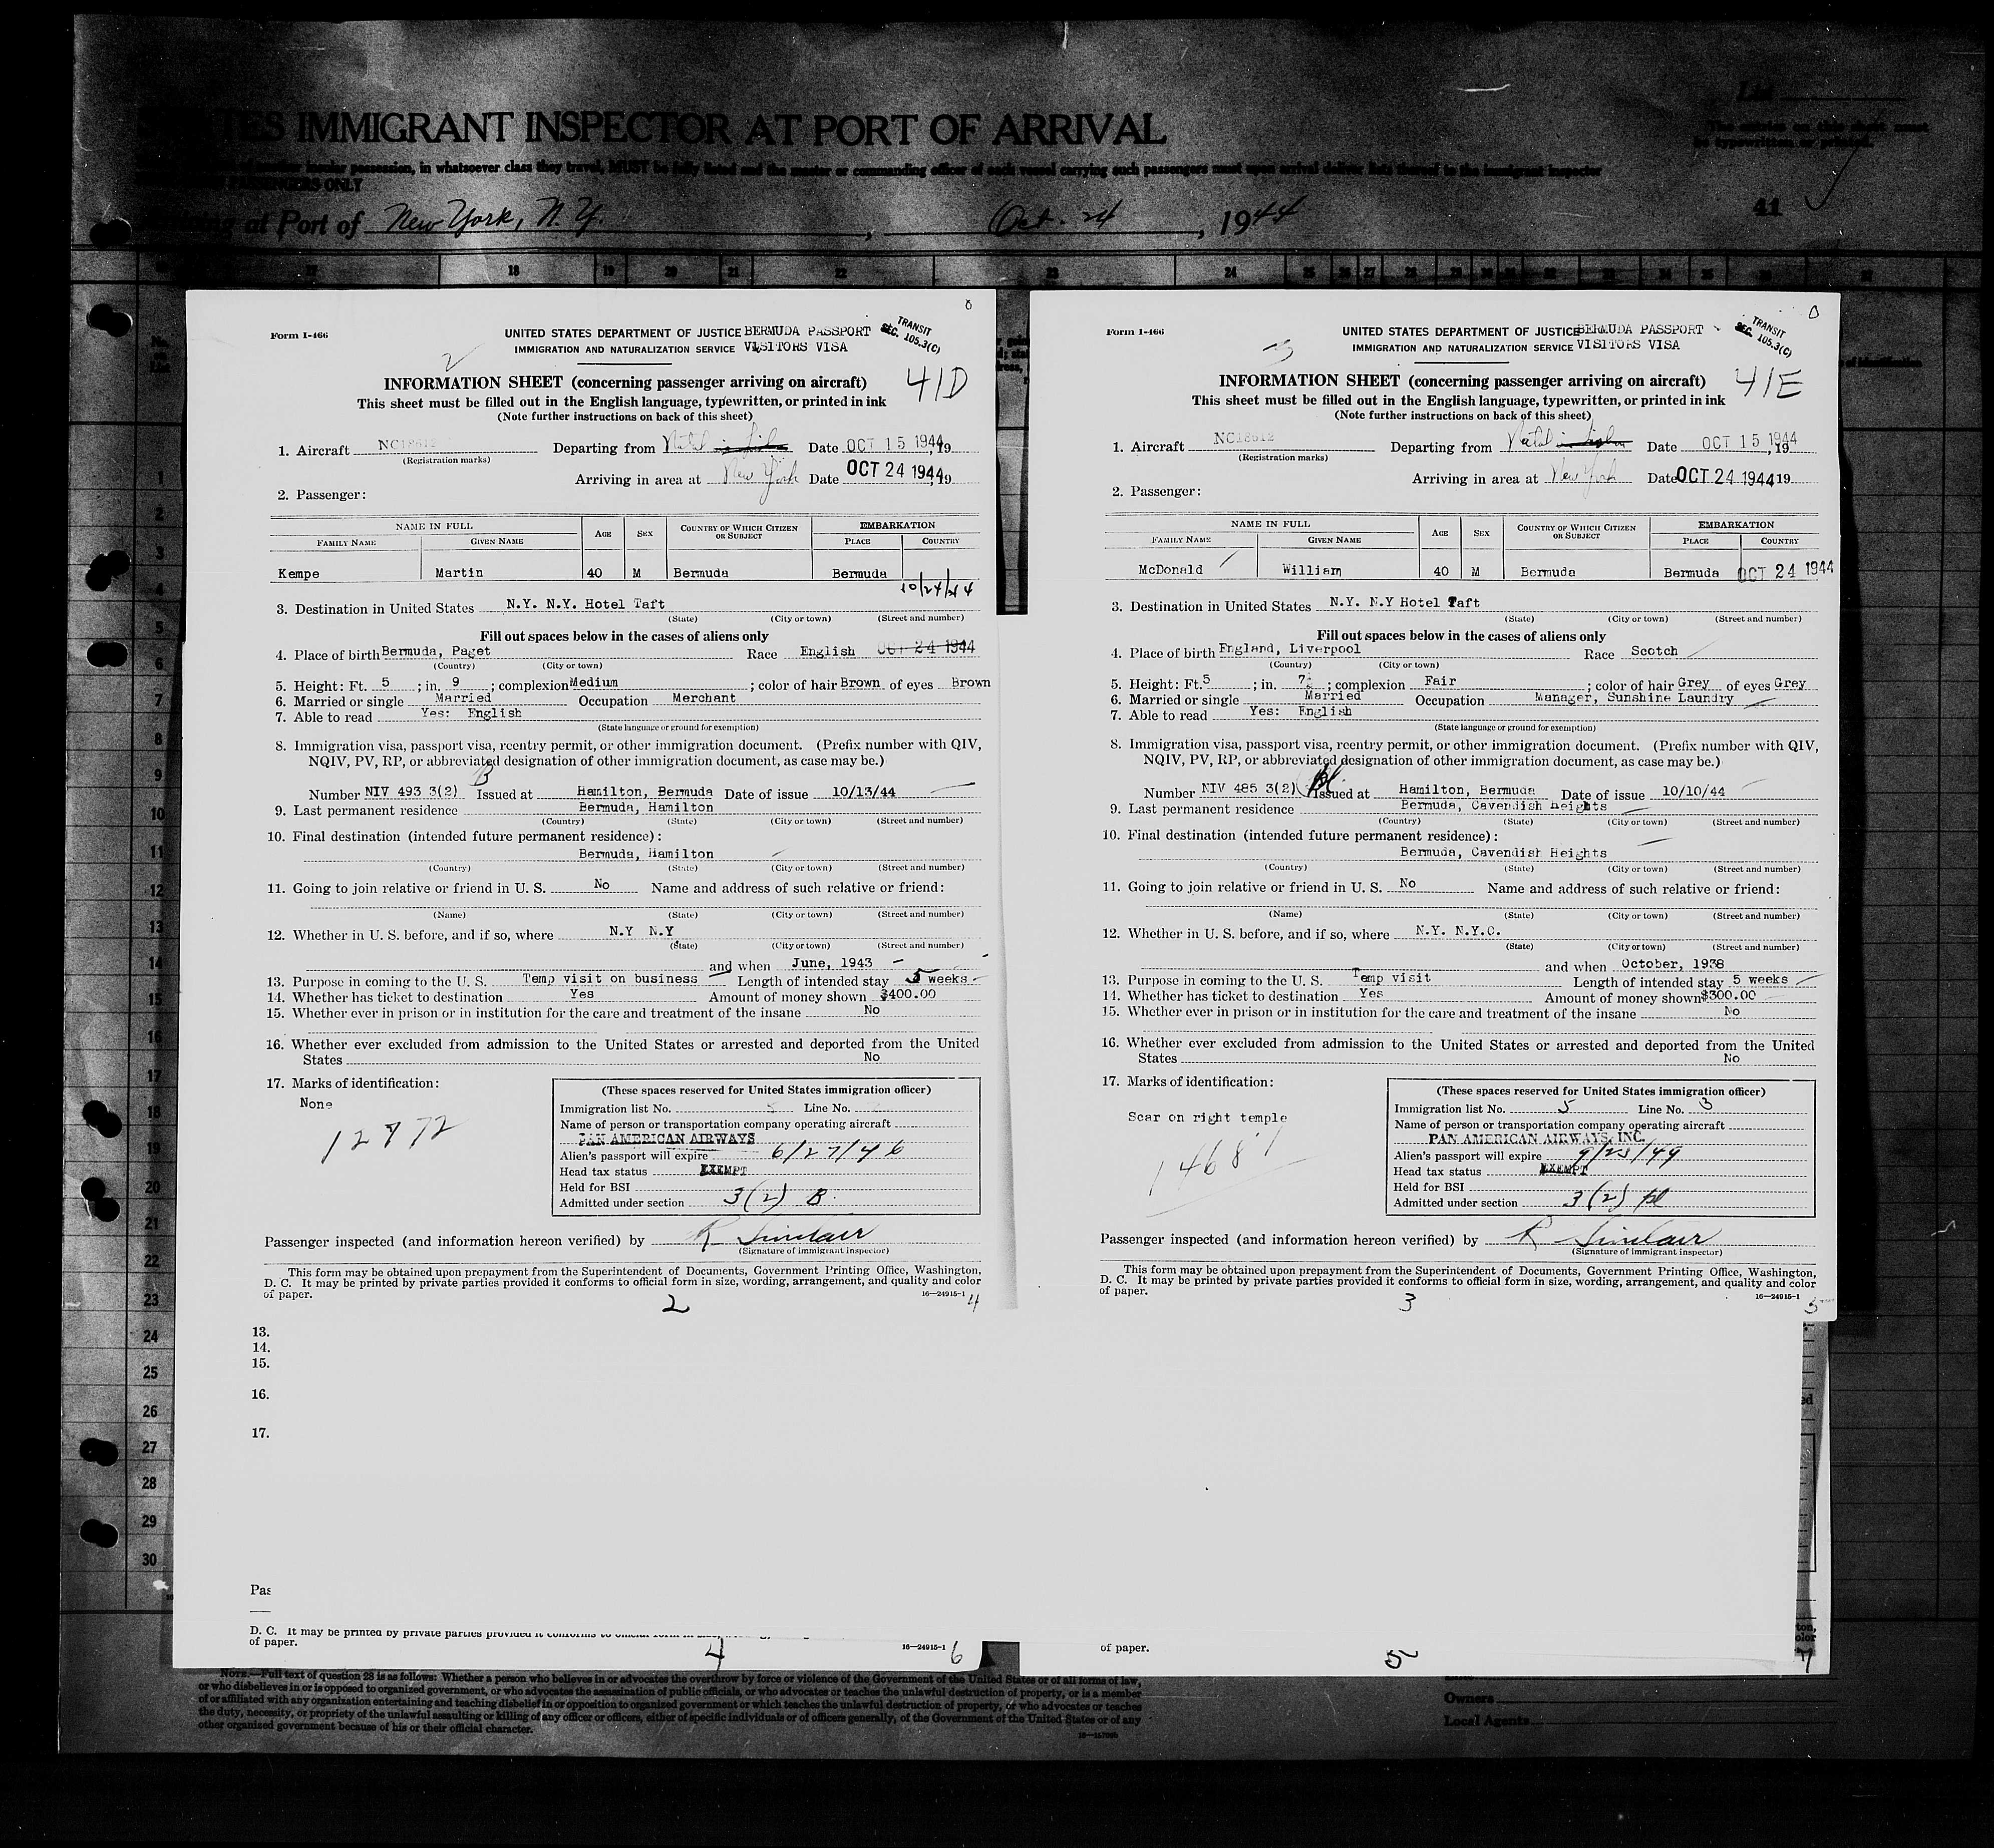 STATES IMMIGRANT INSPECTOR AT PORT OF ARRIVAL
possession, in whatsoever class they travel, MUST be fully listed and the master or commanding officer of each vessel carrying such passengers must upon arrival deliver lists thereof to the immigrant inspector
PASSENGERS ONLY
The entries on this sheet must
be typewritten or printed.
at Port of New York, N.Y. , Oct. 24 , 1944
41
17 18 19 20 21 22 23 24 25 26 27 28
Form I-466
UNITED STATES DEPARTMENT OF JUSTICE BERMUDA PASSPORT
IMMIGRATION AND NATURALIZATION SERVICE VISITORS VISA
TRANSIT
SEC. 105.3(C)
2
41D
INFORMATION SHEET (concerning passenger arriving on aircraft)
This sheet must be filled out in the English language, typewritten, or printed in ink
(Note further instructions on back of this sheet)
1. Aircraft NC18612 Departing from Natal Date OCT 15 1944, 19
(Registration marks)
Arriving in area at New York Date OCT 24 1944, 19
2. Passenger:
NAME IN FULL AGE SEX COUNTRY OF WHICH CITIZEN OR SUBJECT EMBARKATION
FAMILY NAME GIVEN NAME PLACE COUNTRY
Kempe Martin 40 M Bermuda Bermuda
10/24/44
3. Destination in United States N.Y. N.Y. Hotel Taft
(State) (City or town) (Street and number)
Fill out spaces below in the cases of aliens only
4. Place of birth Bermuda, Paget Race English OCT 24 1944
(Country) (City or town)
5. Height: Ft. 5 ; in. 9 ; complexion Medium ; color of hair Brown of eyes Brown
6. Married or single Married Occupation Merchant
7. Able to read Yes: English
(State language or ground for exemption)
8. Immigration visa, passport visa, reentry permit, or other immigration document. (Prefix number with QIV,
NQIV, PV, RP, or abbreviated designation of other immigration document, as case may be.)
B
Number NIV 493 3(2) Issued at Hamilton, Bermuda Date of issue 10/13/44
9. Last permanent residence Bermuda, Hamilton
(Country) (State) (City or town) (Street and number)
10. Final destination (intended future permanent residence):
Bermuda, Hamilton
(Country) (State) (City or town) (Street and number)
11. Going to join relative or friend in U. S. No Name and address of such relative or friend:
(Name) (State) (City or town) (Street and number)
12. Whether in U. S. before, and if so, where N.Y N.Y
(State) (City or town) (Street and number)
and when June, 1943
13. Purpose in coming to the U. S. Temp visit on business Length of intended stay 5 weeks
14. Whether has ticket to destination Yes Amount of money shown $400.00
15. Whether ever in prison or in institution for the care and treatment of the insane No
16. Whether ever excluded from admission to the United States or arrested and deported from the United
States No
17. Marks of identification:
None
12972
(These spaces reserved for United States immigration officer)
Immigration list No. Line No.
Name of person or transportation company operating aircraft
PAN AMERICAN AIRWAYS
Alien's passport will expire 6/27/46
Head tax status EXEMPT
Held for BSI
Admitted under section 3(2) B
Passenger inspected (and information hereon verified) by R Sinclair
(Signature of immigrant inspector)
This form may be obtained upon prepayment from the Superintendent of Documents, Government Printing Office, Washington,
D. C. It may be printed by private parties provided it conforms to official form in size, wording, arrangement, and quality and color
of paper.
16—24915-1
2
4
Form I-466
UNITED STATES DEPARTMENT OF JUSTICE BERMUDA PASSPORT
IMMIGRATION AND NATURALIZATION SERVICE VISITORS VISA
TRANSIT
SEC. 105.3(C)
3
41E
INFORMATION SHEET (concerning passenger arriving on aircraft)
This sheet must be filled out in the English language, typewritten, or printed in ink
(Note further instructions on back of this sheet)
1. Aircraft NC18612 Departing from Natal Date OCT 15 1944, 19
(Registration marks)
Arriving in area at New York Date OCT 24 1944 19
2. Passenger:
NAME IN FULL AGE SEX COUNTRY OF WHICH CITIZEN OR SUBJECT EMBARKATION
FAMILY NAME GIVEN NAME PLACE COUNTRY
McDonald William 40 M Bermuda Bermuda OCT 24 1944
3. Destination in United States N.Y. N.Y Hotel Taft
(State) (City or town) (Street and number)
Fill out spaces below in the cases of aliens only
4. Place of birth England, Liverpool Race Scotch
(Country) (City or town)
5. Height: Ft. 5 ; in. 7½ ; complexion Fair ; color of hair Grey of eyes Grey
6. Married or single Married Occupation Manager, Sunshine Laundry
7. Able to read Yes: English
(State language or ground for exemption)
8. Immigration visa, passport visa, reentry permit, or other immigration document. (Prefix number with QIV,
NQIV, PV, RP, or abbreviated designation of other immigration document, as case may be.)
Number NIV 485 3(2) Issued at Hamilton, Bermuda Date of issue 10/10/44
9. Last permanent residence Bermuda, Cavendish Heights
(Country) (State) (City or town) (Street and number)
10. Final destination (intended future permanent residence):
Bermuda, Cavendish Heights
(Country) (State) (City or town) (Street and number)
11. Going to join relative or friend in U. S. No Name and address of such relative or friend:
(Name) (State) (City or town) (Street and number)
12. Whether in U. S. before, and if so, where N.Y. N.Y.C.
(State) (City or town) (Street and number)
and when October, 1938
13. Purpose in coming to the U. S. Temp visit Length of intended stay 5 weeks
14. Whether has ticket to destination Yes Amount of money shown $300.00
15. Whether ever in prison or in institution for the care and treatment of the insane No
16. Whether ever excluded from admission to the United States or arrested and deported from the United
States No
17. Marks of identification:
Scar on right temple
14687
(These spaces reserved for United States immigration officer)
Immigration list No. 5 Line No. 3
Name of person or transportation company operating aircraft
PAN AMERICAN AIRWAYS, INC.
Alien's passport will expire 9/23/49
Head tax status EXEMPT
Held for BSI
Admitted under section 3(2)
Passenger inspected (and information hereon verified) by R Sinclair
(Signature of immigrant inspector)
This form may be obtained upon prepayment from the Superintendent of Documents, Government Printing Office, Washington,
D. C. It may be printed by private parties provided it conforms to official form in size, wording, arrangement, and quality and color
of paper.
16—24915-1
3
5
1
2
3
4
5
6
7
8
9
10
11
12
13
14
15
16
17
18
19
20
21
22
23
24
25
26
27
28
29
30
13.
14.
15.
16.
17.
Pas
D. C. It may be printed by private parties provided it conforms to official form
of paper.
16—24915-1
4
6
of paper.
5
7
NOTE.—Full text of question 28 is as follows: Whether a person who believes in or advocates the overthrow by force or violence of the Government of the United States or of all forms of law,
or who disbelieves in or is opposed to organized government, or who advocates the assassination of public officials, or who advocates or teaches the unlawful destruction of property, or is a member
of or affiliated with any organization entertaining and teaching disbelief in or opposition to organized government or which teaches the unlawful destruction of property, or who advocates or teaches
the duty, necessity, or propriety of the unlawful assaulting or killing of any officer or officers, either of specific individuals or of officers generally, of the Government of the United States or of any
other organized government because of his or their official character.
Owners
Local Agents